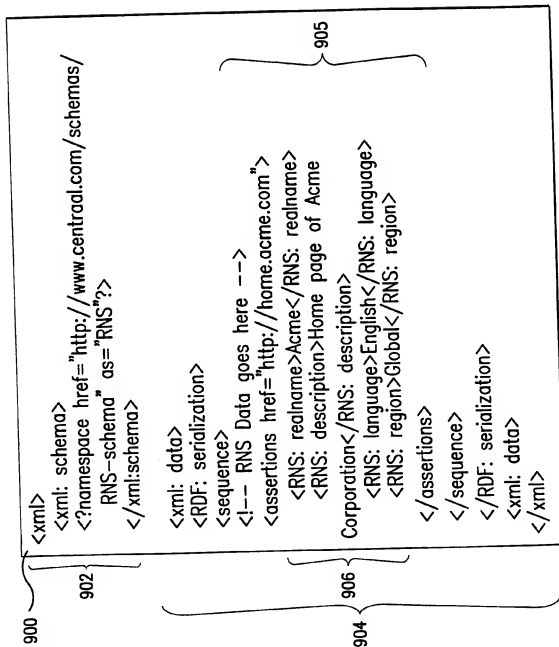 900
<xml>
<xml: schema>
<?namespace href="http://www.centraal.com/schemas/
RNS-schema" as="RNS"?>
</xml:schema>
902
<xml: data>
<RDF: serialization>
<sequence>
<!-- RNS Data goes here -->
<assertions href="http://home.acme.com">
<RNS: realname>Acme</RNS: realname>
<RNS: description>Home page of Acme
Corporation</RNS: description>
<RNS: language>English</RNS: language>
<RNS: region>Global</RNS: region>
</assertions>
</sequence>
</RDF: serialization>
<xml: data>
</xml>
905
906
904